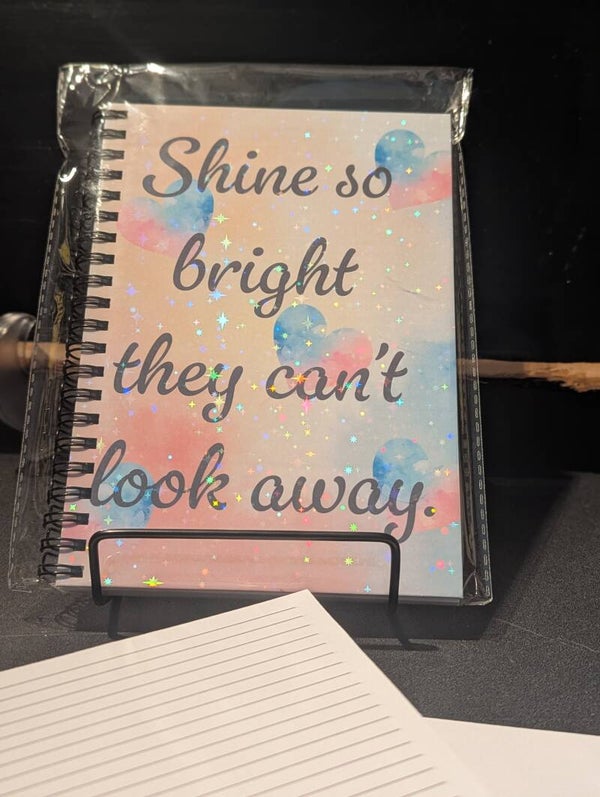 Shine so
bright
they can't
look away.